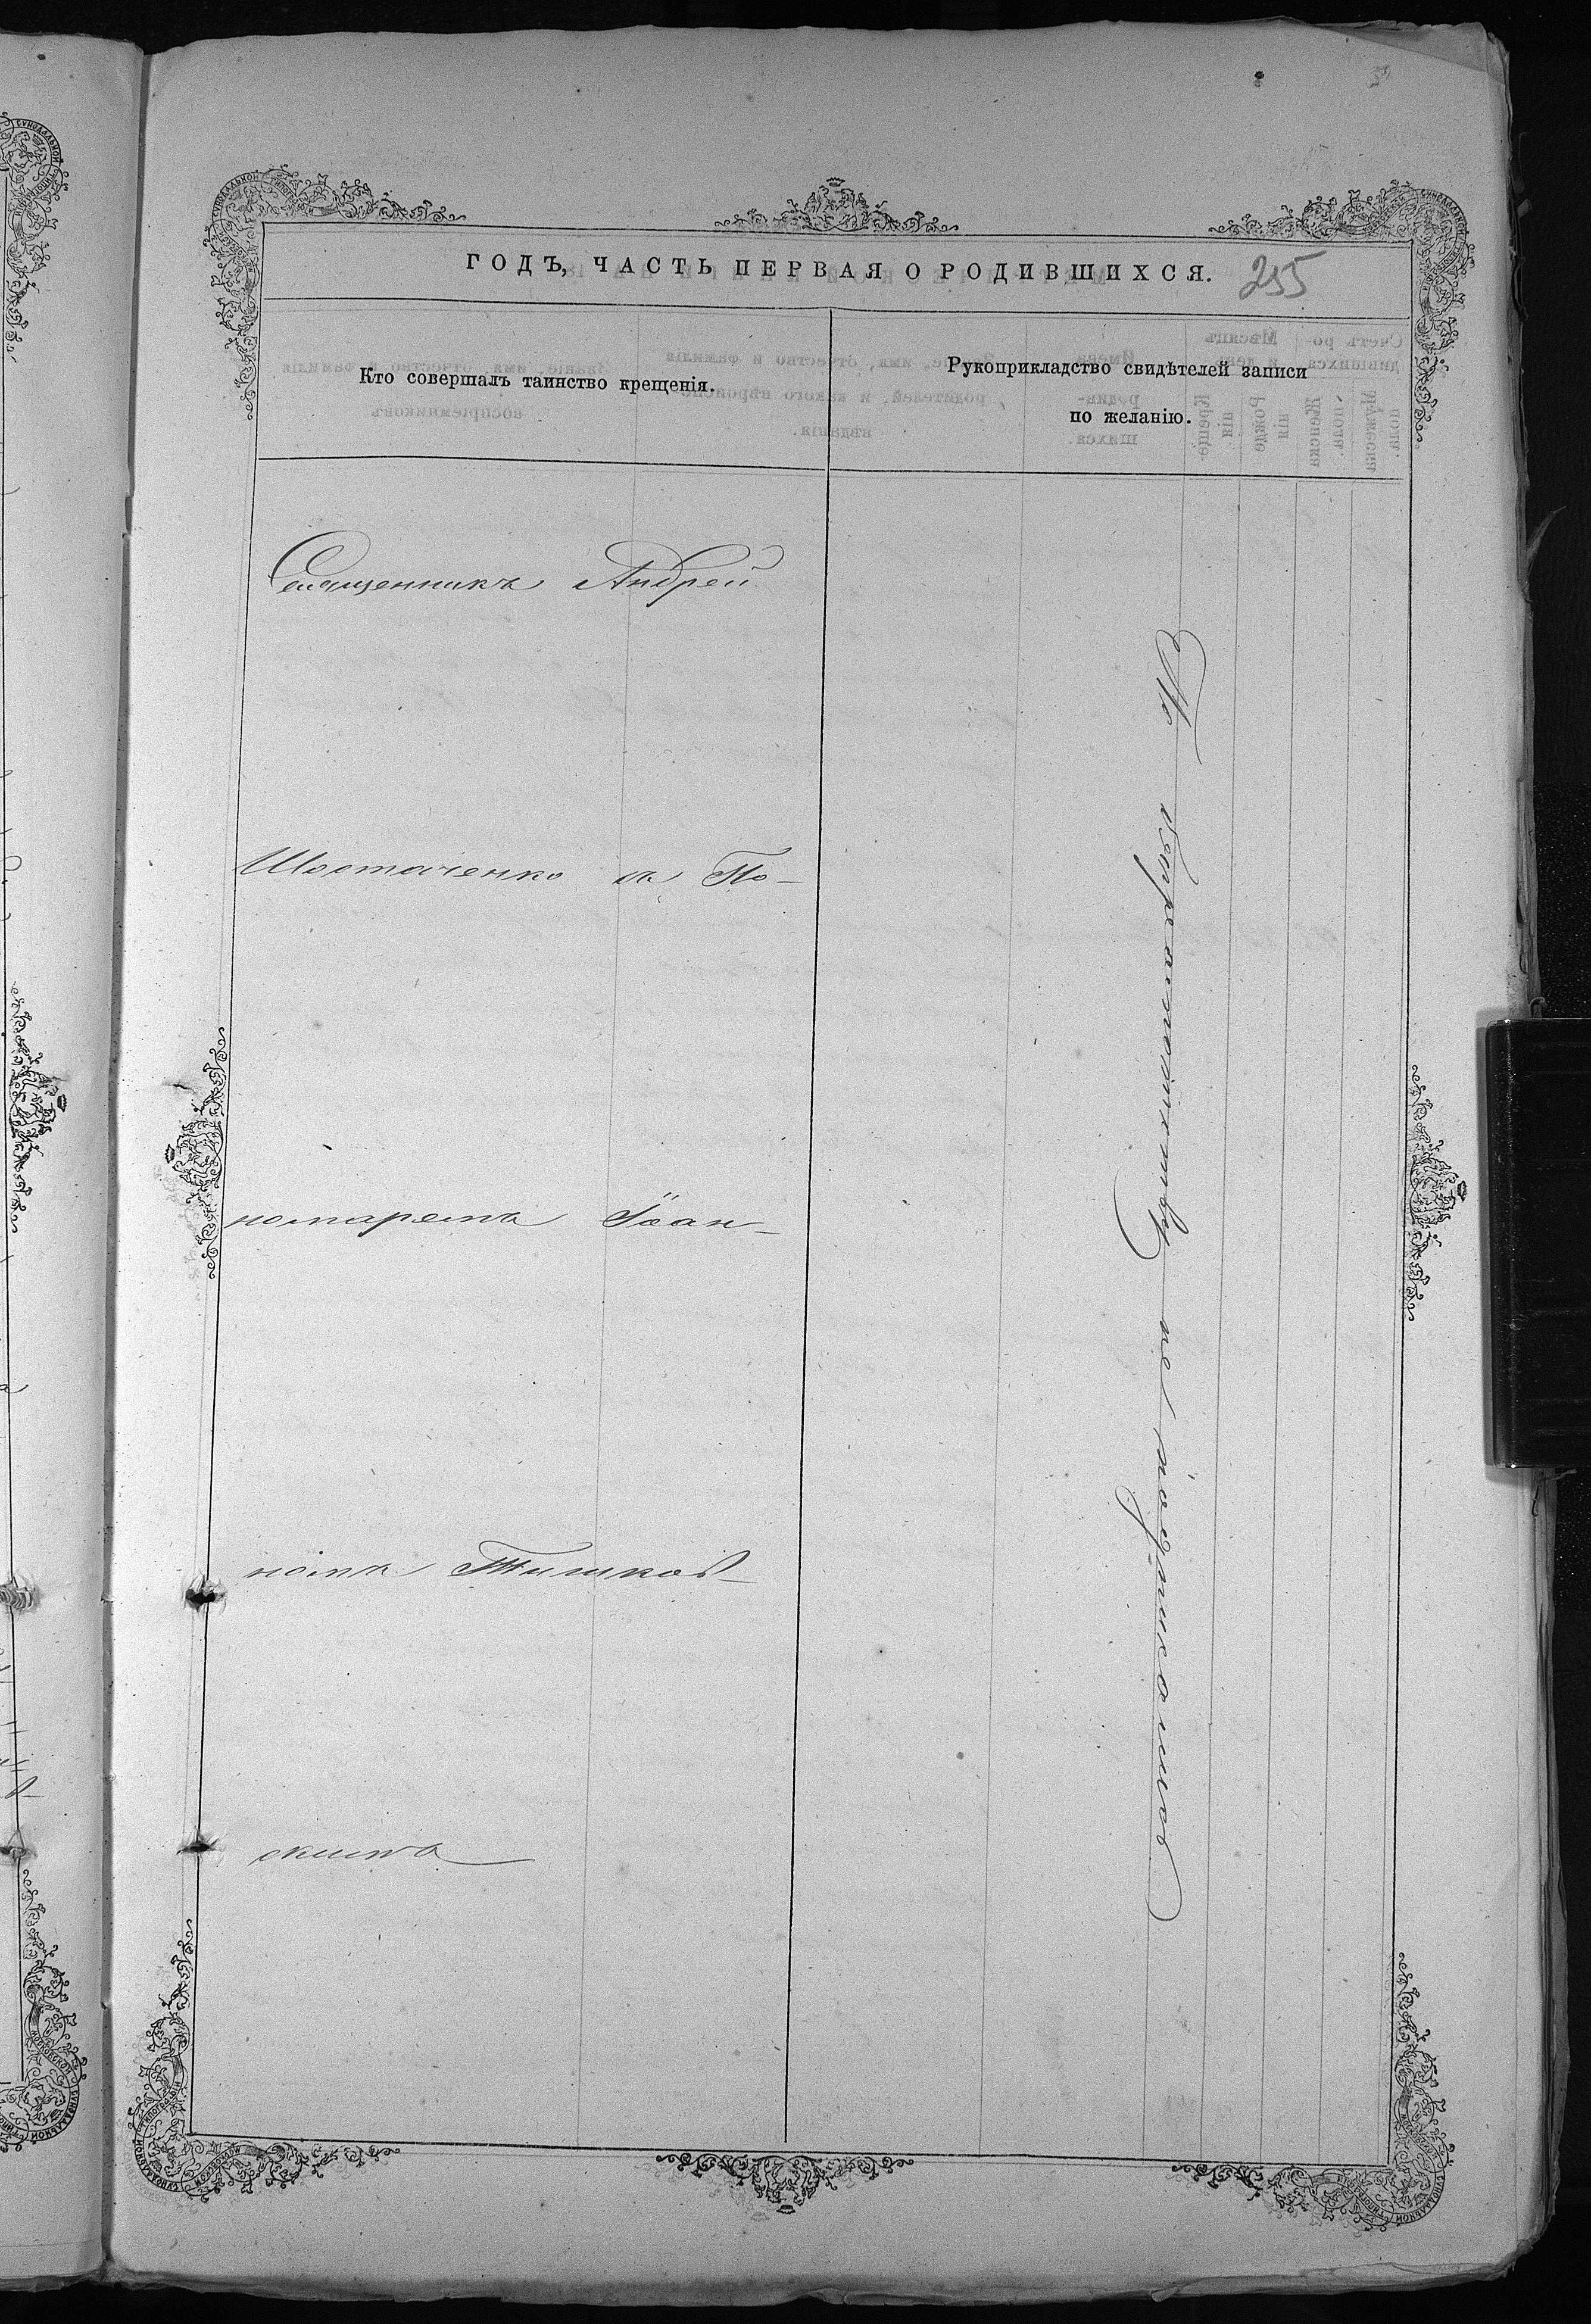 ГОДЪ, ЧАСТЬ ПЕРВАЯ О РОДИВШИХСЯ. 255
Кто совершалъ таинство крещенія.
Рукоприкладство свидѣтелей записи
по желанію.
Священникъ Андрей
Шостаченко съ По-
номаремъ Іоан-
номъ Тишков-
скимъ
По безграмотству не росписались